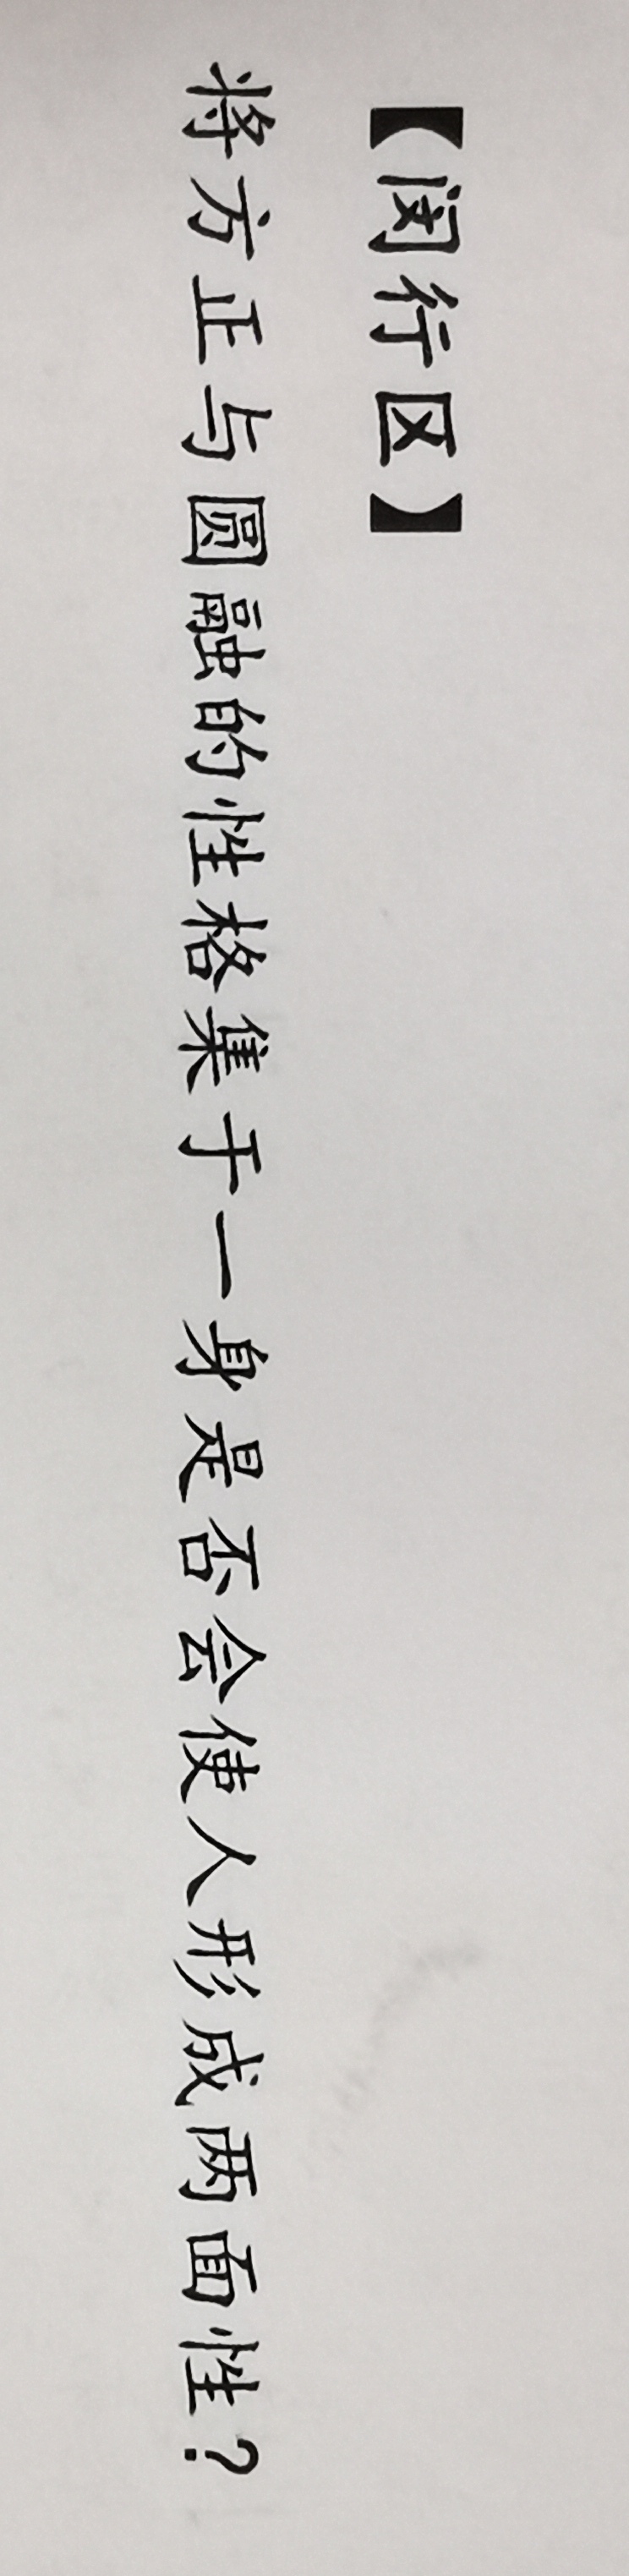 【闵行区】
将方正与圆融的性格集于一身是否会使人形成两面性？